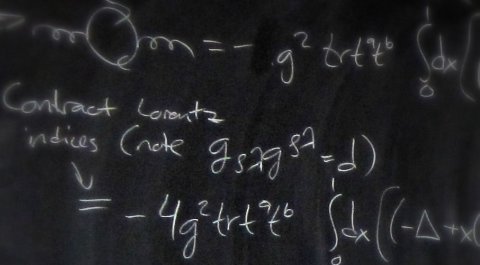 = - g² tr tᵃtᵇ ∫₀¹ dx (
Contract Lorentz
indices (note g_{ρλ}g^{ρλ} = d)
= - 4g² tr tᵃtᵇ ∫₀¹ dx ((-Δ + x(